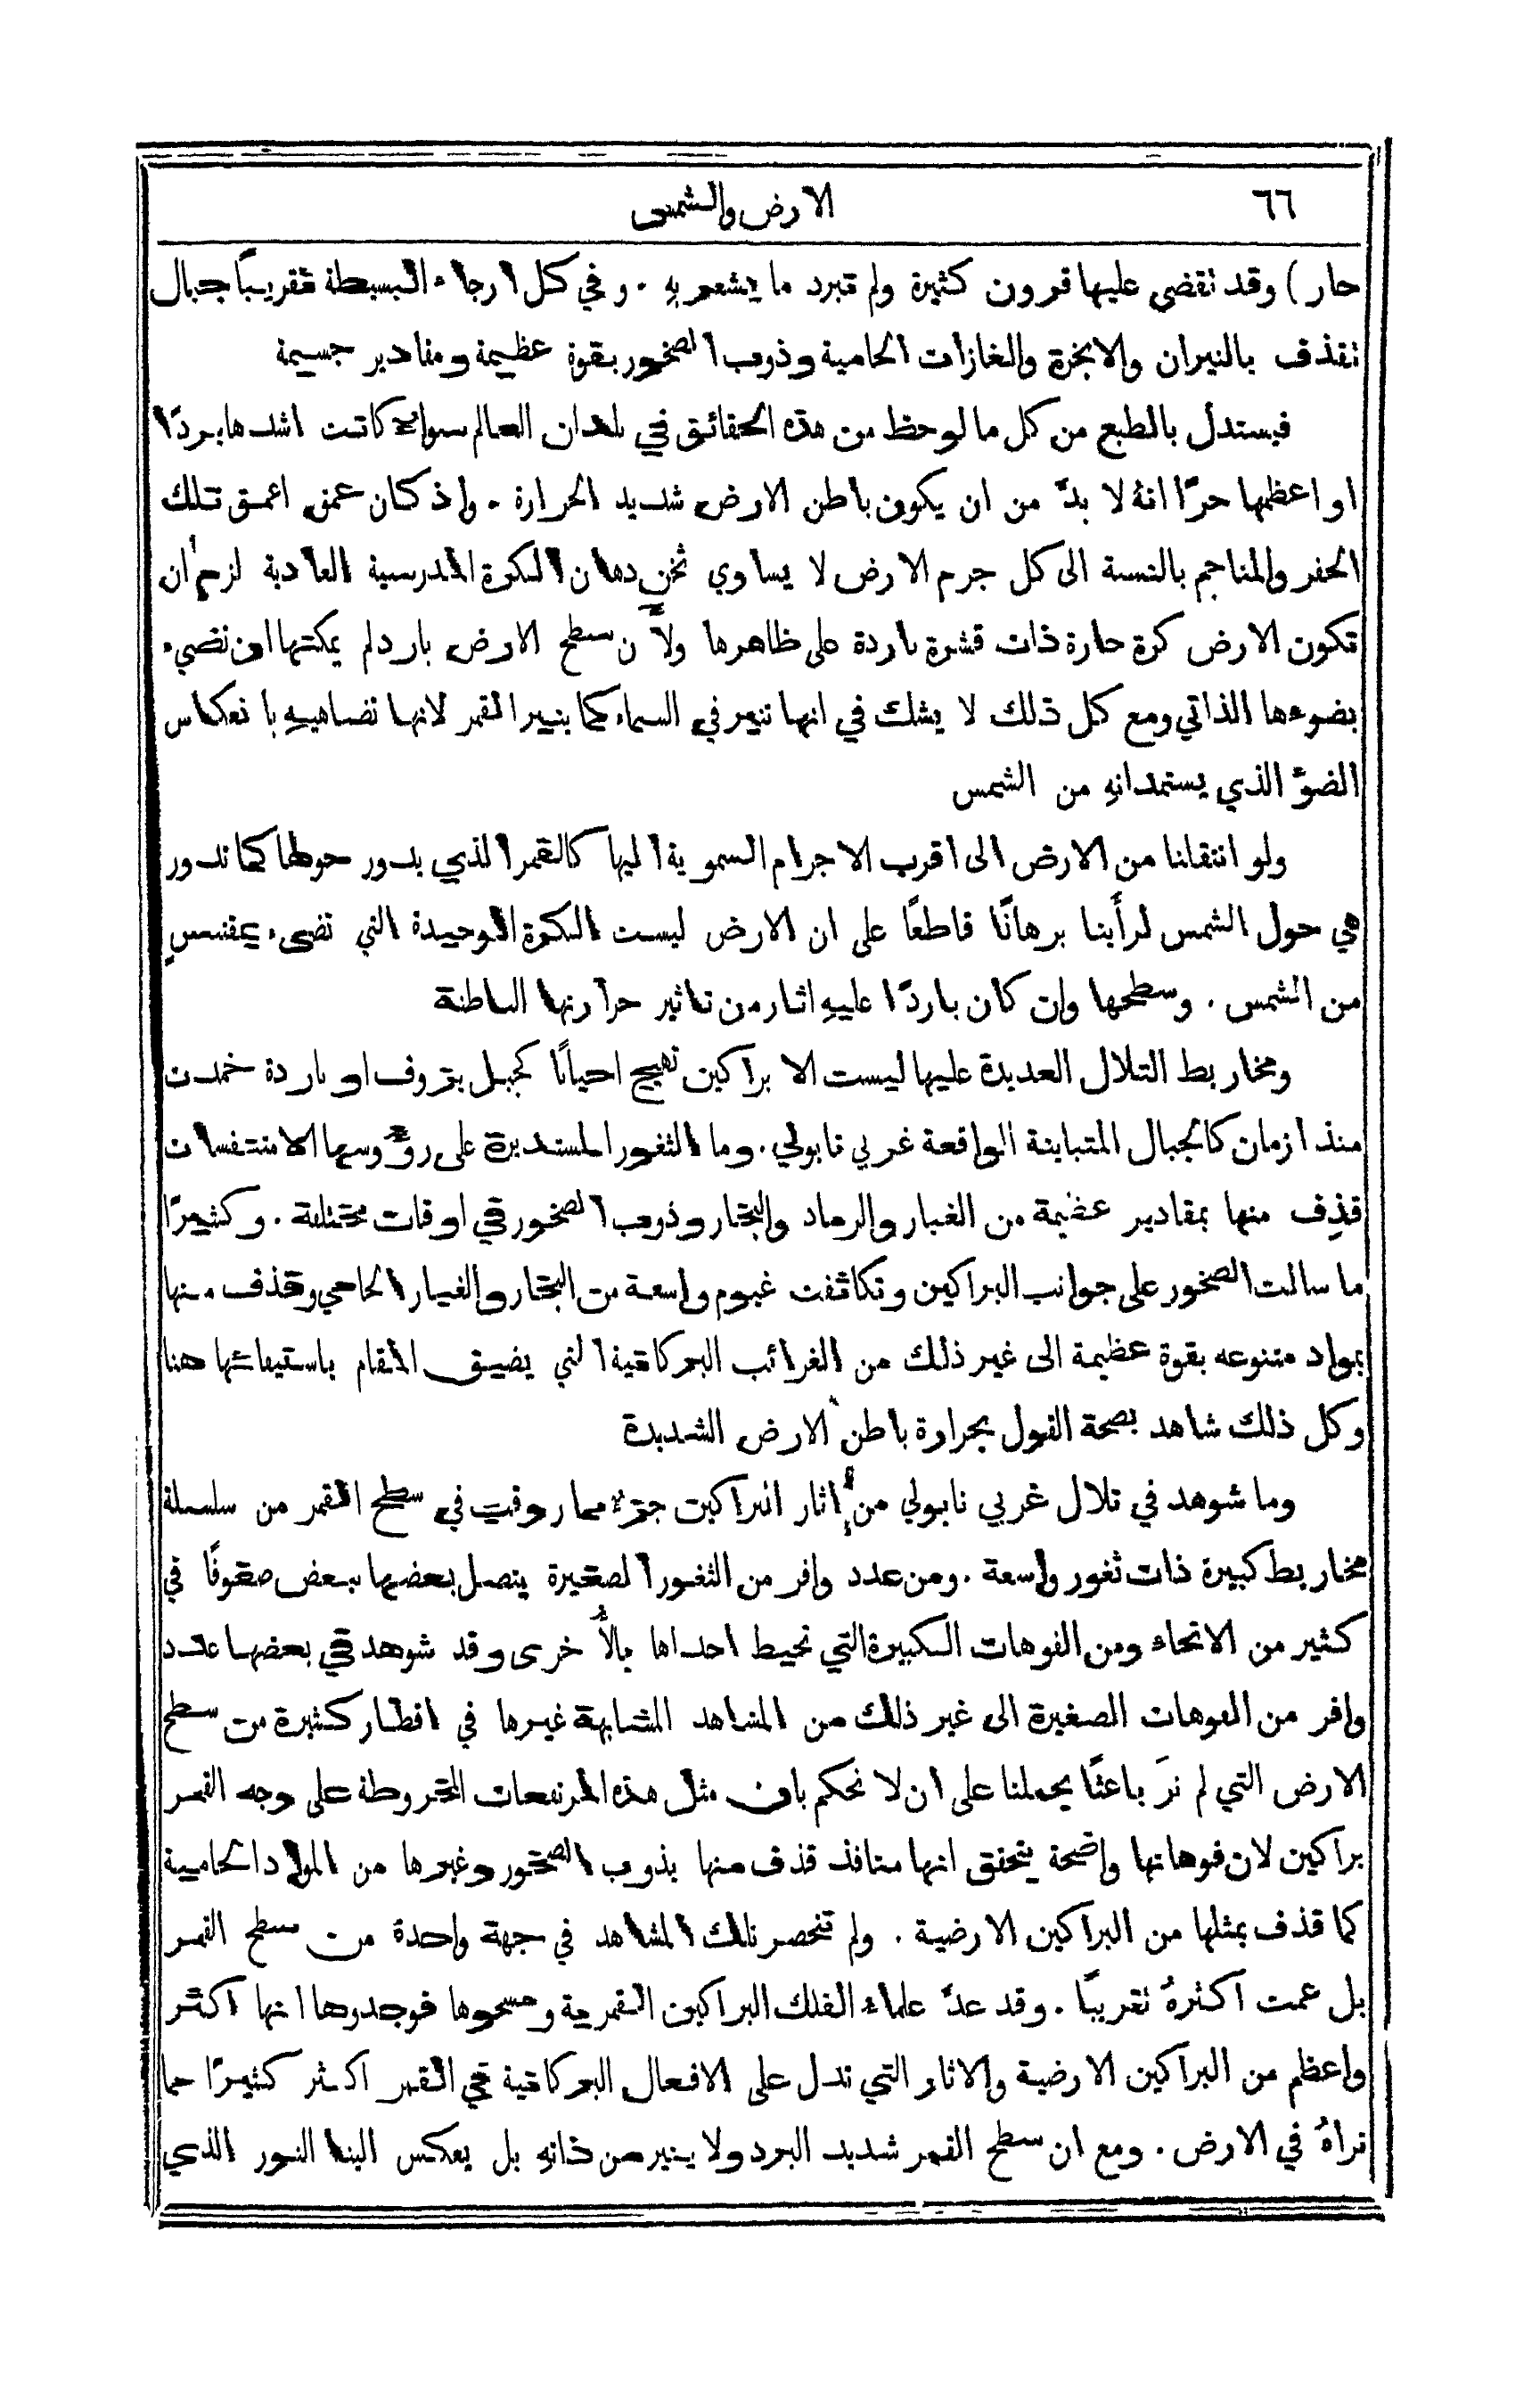 ٦٦
الارض والشمس
حار) وقد تقضى عليها قرون كثيرة ولم تبرد ما يشعر بهِ . وفي كل ارجاء البسيطة تقريبًا جبال
تقذف بالنيران والابخرة والغازات الحامية وذوب الصخور بقوة عظيمة ومقادير جسيمة
فيستدل بالطبع من كل ما لوحظ من هذه الحقائق في بلدان العالم سوالا كانت اشدها بردًا
او اعظمها حرًّا انهُ لا بدَّ من ان يكون باطن الارض شديد الحرارة . واذ كان عمق اعمق تلك
الحفر والمناجم بالنسبة الى كل جرم الارض لا يساوي ثخن دهان الكرة المدرسية العادية لزم أن
تكون الارض كرة حارة ذات قشرة باردة على ظاهرها ولأَّن سطح الارض بارد لم يمكنها ان تضيء
بضوءها الذاتي ومع كل ذلك لا يشك في انها تنير في السماء كما ينير القمر لانها تضاهيهِ بانعكاس
الضوء الذي يستمدانهِ من الشمس
ولو انتقلنا من الارض الى اقرب الاجرام السموية اليها كالقمر الذي يدور حولها كما تدور
هي حول الشمس لرأَينا برهانًا قاطعًا على ان الارض ليست الكرة الوحيدة التي تضيء بقبسٍ
من الشمس . وسطحها وان كان باردًا عليهِ اثار من تاثير حرارتها الباطنة
ومخاريط التلال العديدة عليها ليست الا براكين تهيج احيانًا كجبل بزوف او باردة خمدت
منذ ازمان كالجبال المتباينة الواقعة غربي نابولي . وما الثغور المستديرة على رؤُوسها الا متنفسات
قذِف منها بمقادير عظيمة من الغبار والرماد والبخار وذوب الصخور في اوقات مختلفة . وكثيرًا
ما سالت الصخور على جوانب البراكين وتكاثفت غيوم واسعة من البخار والغبار الحامي وقذف منها
بمواد متنوعه بقوة عظيمة الى غير ذلك من الغرائب البركانية التي يضيق المقام باستيفائها هنا
وكل ذلك شاهد بصحة القول بحرارة باطن الارض الشديدة
وما شوهد في تلال غربي نابولي من اثار البراكين جزء مما روقب في سطح القمر من سلسلة
مخاريط كبيرة ذات ثغور واسعة . ومن عدد وافر من الثغور الصغيرة يتصل بعضها ببعض صفوفًا في
كثير من الانحاء ومن الفوهات الكبيرة التي تحيط احداها بالأُخرى وقد شوهد في بعضها عدد
وافر من الفوهات الصغيرة الى غير ذلك من المشاهد المشابهة غيرها في اقطار كثيرة من سطح
الارض التي لم نرَ باعثًا يحملنا على ان لا نحكم بان مثل هذه المرتفعات المخروطة على وجه القمر
براكين لان فوهاتها واضحة يتحقق انها منافذ قذف منها بذوب الصخور وغيرها من المواد الحامية
كما قذف بمثلها من البراكين الارضية . ولم تنحصر تلك المشاهد في جهة واحدة من سطح القمر
بل عمت اكثرهُ تقريبًا . وقد عدَّ علماء الفلك البراكين القمرية ومسحوها فوجدوها انها اكثر
واعظم من البراكين الارضية والاثار التي تدل على الافعال البركانية في القمر اكثر كثيرًا مما
نراهُ في الارض . ومع ان سطح القمر شديد البرد ولا ينير من ذاتهِ بل يعكس الينا النور الذي